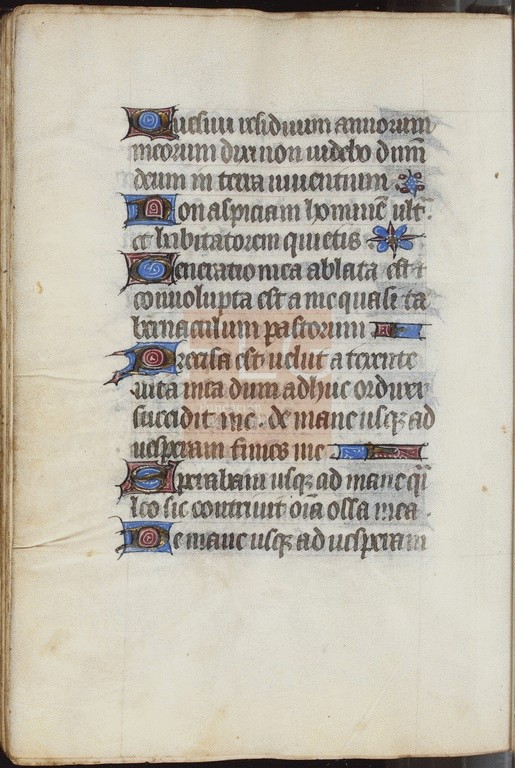 Quesiui residuum annorum
meorum dixi non uidebo dñm
deum in terra uiuentium
Non aspiciam hominē ult̃.
et habitatorem quietis
Generatio mea ablata est ⁊
conuolupta est a me quasi ta
bernaculum pastorum
Precisa est uelut a texente
uita mea dum adhuc ordirer
succidit me. de mane usqꝫ ad
uesperam finies me
Sperabam usqꝫ ad mane q̃i
leo sic contriuit oīa ossa mea.
De mane usqꝫ ad uesperam